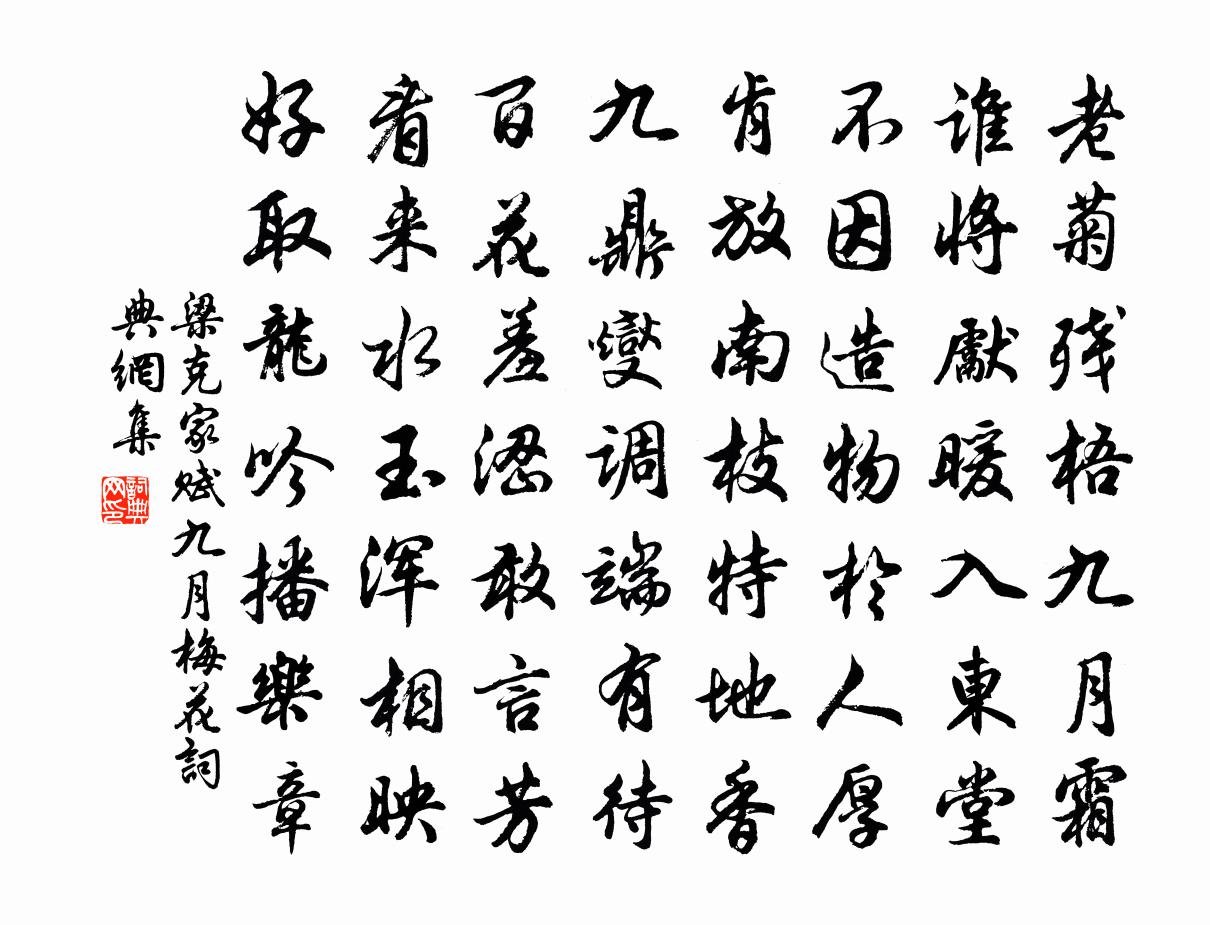 老菊残梧九月霜
谁將獻暖入東堂
不因造物於人厚
肯放南枝特地香
九鼎燮调端有待
百花羞澀敢言芳
看来水玉浑相映
好取龍吟播樂章
梁克家賦九月梅花詞
典網集
詞典网印